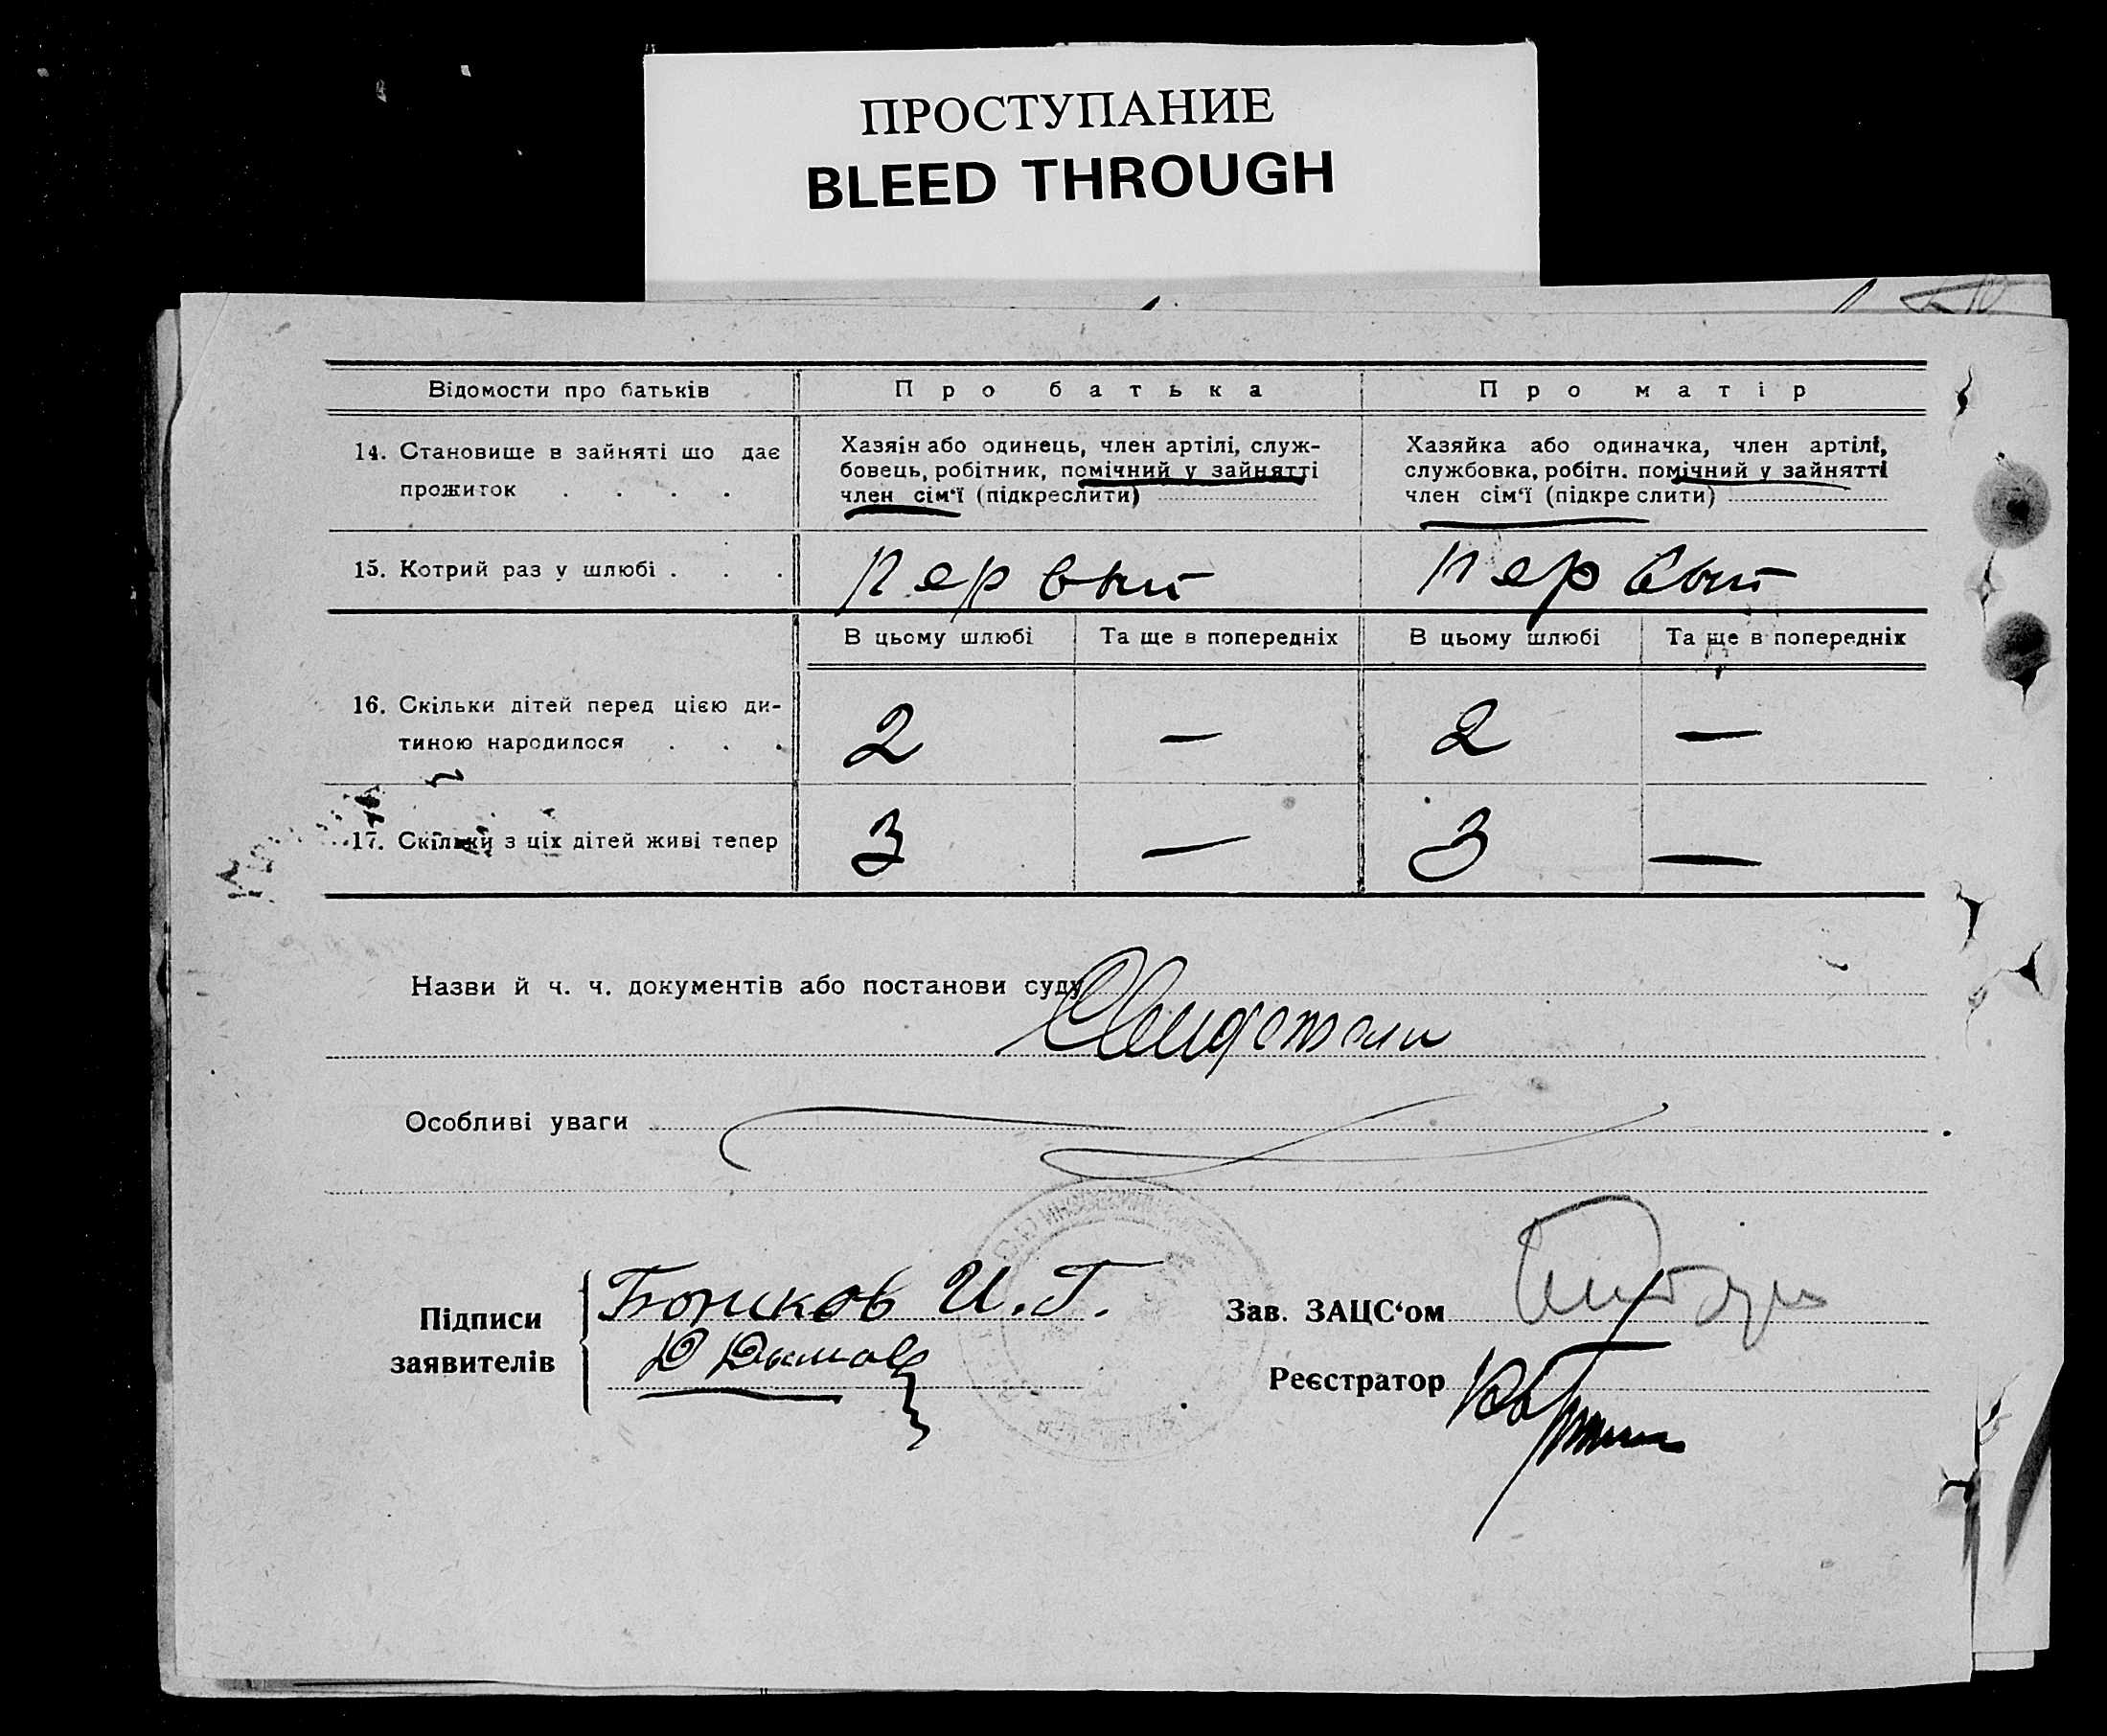 ПРОСТУПАНИЕ
BLEED THROUGH
Відомости про батьків
Про батька
Про матір
14. Становище в зайняті шо дає
прожиток . . . .
Хазяін або одинець, член артілі, служ-
бовець, робітник, помічний у зайнятті
член сім‘ї (підкреслити)
Хазяйка або одиначка, член артілі,
службовка, робітн. помічний у зайнятті
член сім‘ї (підкре слити)
15. Котрий раз у шлюбі . . .
первый
первый
В цьому шлюбі
Та ще в попередніх
В цьому шлюбі
Та ще в попередніх
16. Скільки дітей перед цією ди-
тиною народилося . . .
2
—
2
—
17. Скільки з ціх дітей живі тепер
3
—
3
—
Назви й ч. ч. документів або постанови суду
Особливі уваги
Підписи
заявителів
И. Г.
Зав. ЗАЦС‘ом
Реєстратор